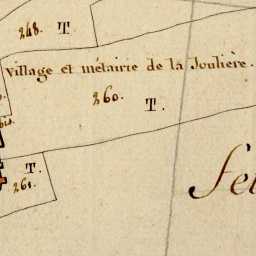 248. T.
Village et métairie de la Joulière.
260. T.
T.
261.